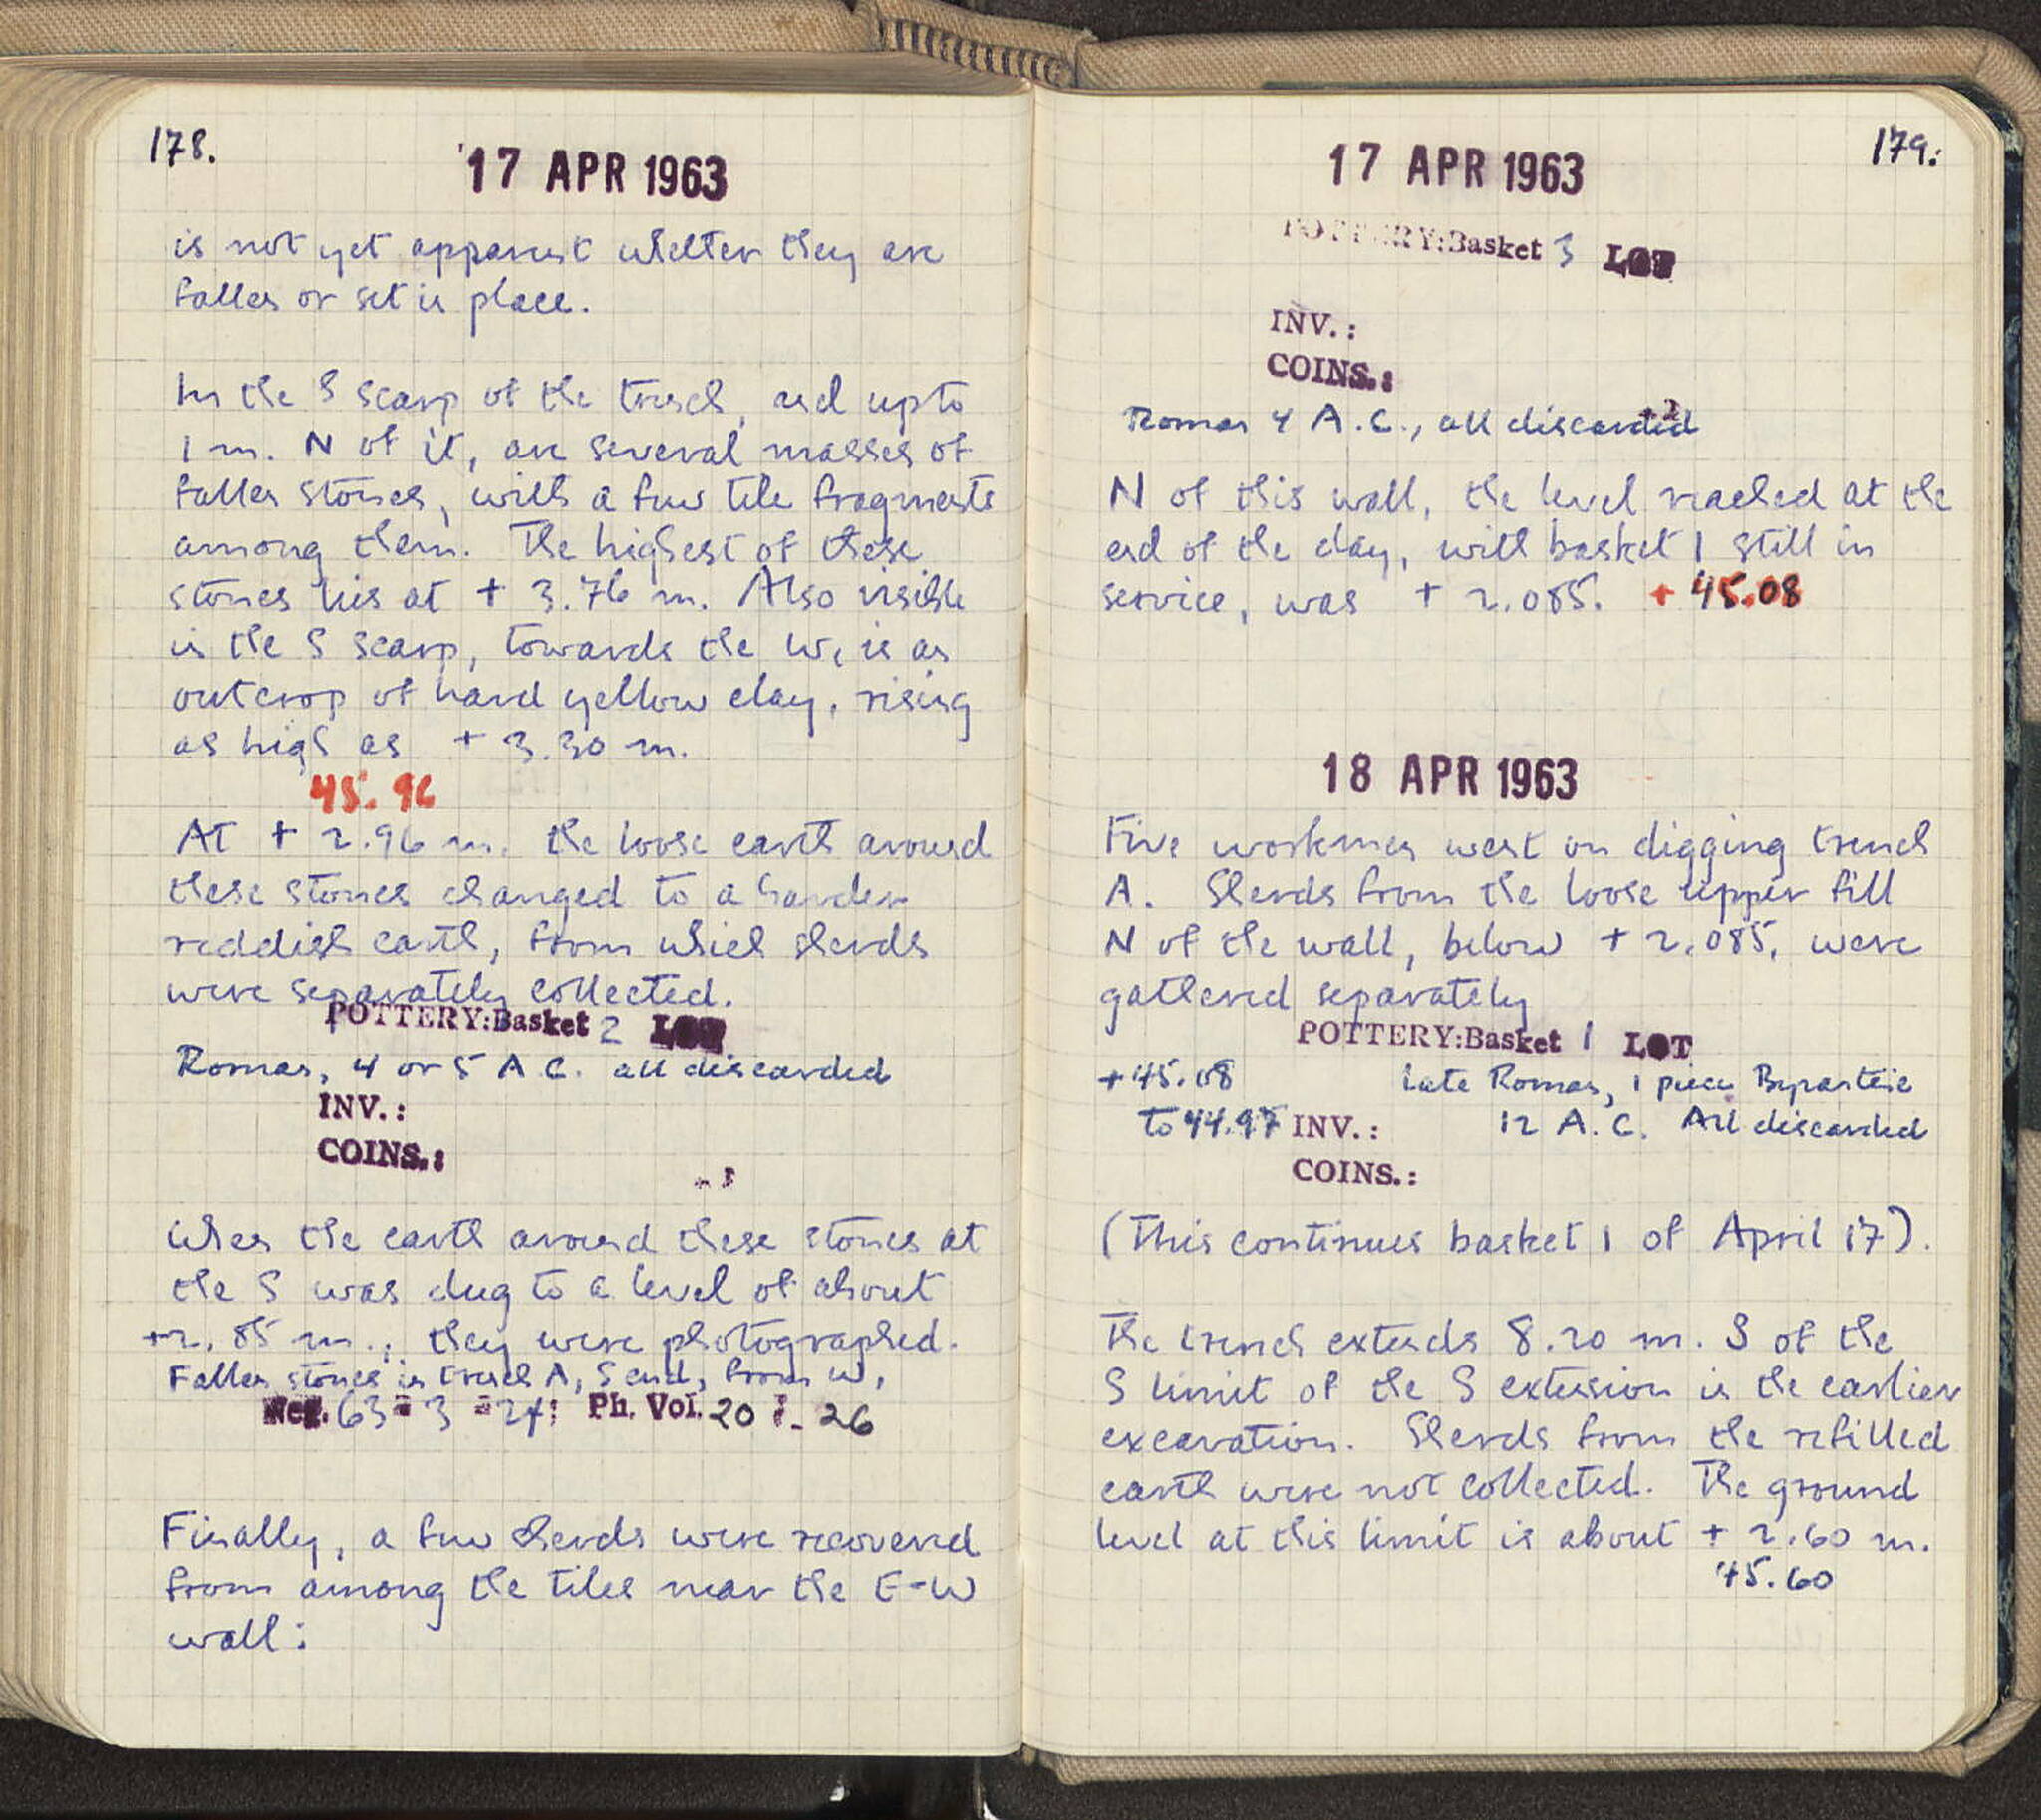 178.
17 APR 1963
is not yet apparent whether they are
fallen or set in place.
In the S scarp of the trench, and up to
1 m. N of it, are several masses of
fallen stones, with a few tile fragments
among them. The highest of these
stones lies at + 3.76 m. Also visible
in the S scarp, towards the W, is an
outcrop of hard yellow clay, rising
as high as + 3.30 m.
45.96
At + 2.96 m. the loose earth around
these stones changed to a harder
reddish earth, from which sherds
were separately collected.
POTTERY:Basket 2 LOT
Roman, 4 or 5 A.C. all discarded
INV.:
COINS.:
When the earth around these stones at
the S was dug to a level of about
+2.85 m., they were photographed.
Fallen stones in trench A, S end, from W,
Neg. 63-3-24; Ph. Vol. 20 :- 26
Finally, a few sherds were recovered
from among the tiles near the E-W
wall:
179.
17 APR 1963
POTTERY:Basket 3 LOT
INV.:
COINS.:
Roman 4 A.C., all discarded
N of this wall, the level reached at the
end of the day, with basket 1 still in
service, was + 2.085. + 45.08
18 APR 1963
Five workmen went on digging trench
A. Sherds from the loose upper fill
N of the wall, below + 2.085, were
gathered separately
POTTERY:Basket 1 LOT
+45.08 Late Roman, 1 piece Byzantine
to 44.97 INV.: 12 A.C. All discarded
COINS.:
(This continues basket 1 of April 17).
The trench extends 8.20 m. S of the
S limit of the S extension in the earlier
excavation. Sherds from the refilled
earth were not collected. The ground
level at this limit is about + 2.60 m.
45.60